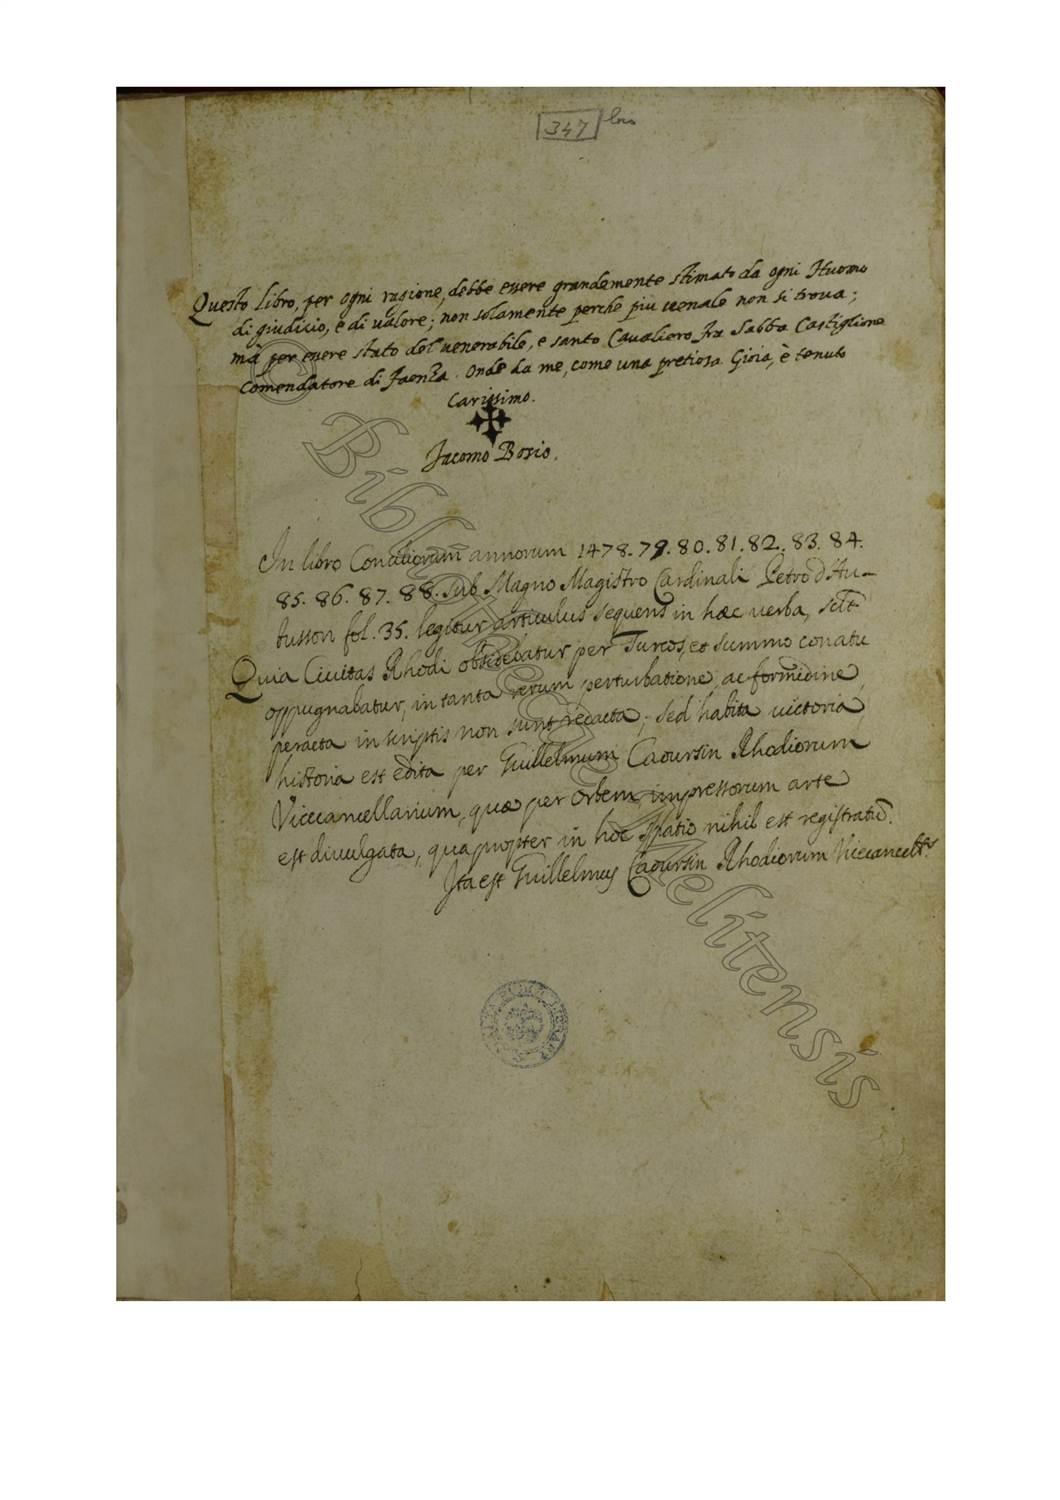 347 bis
Questo libro, per ogni ragione, debbe essere grandemente stimato da ogni Huomo
di giudicio, e di valore; non solamente perche piu uenale non si troua;
mà per essere stato del uenerabile, e santo Caualiero fra Sabba Castiglione
Comendatore di Faenza. Onde da me, come una pretiosa Gioia, è tenuto
Carissimo.
Jacomo Bosio.
In libro Conciliorum annorum 1478. 79. 80. 81. 82. 83. 84.
85. 86. 87. 88. sub Magno Magistro Cardinali Petro d'Au-
busson fol. 35. legitur articulus sequens in hæc verba, scilt
Quia Ciuitas Rhodi obsidebatur per Turcos, et summo conatu
oppugnabatur, in tanta rerum perturbatione, ac formidine,
peracta in scriptis non sunt redacta; sed habita uictoria,
historia est edita per Guillelmum Caoursin Rhodiorum
Vicecancellarium, quæ per orbem impressorum arte
est diuulgata, quapropter in hoc spatio nihil est registratũ.
Ita est Guillelmus Caoursin Rhodiorum Vicecancells
© Bibliotheca Melitensis